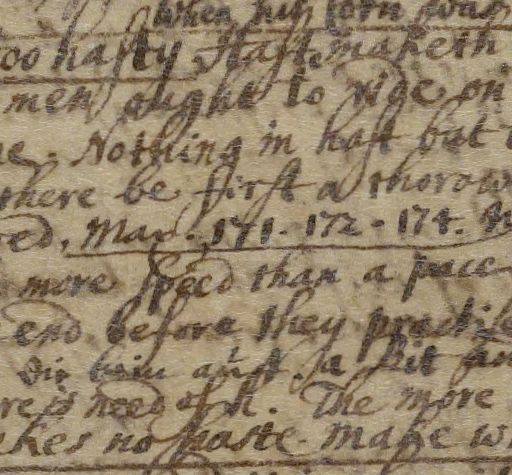 when his corn was
too hasty Hast maketh
men ought to ride on
Nothing in hast but
there be first a thorow
Max. 171. 172. 174.
more speed than a pace
end before they practise
a Bit
need of it. The more
no haste. make